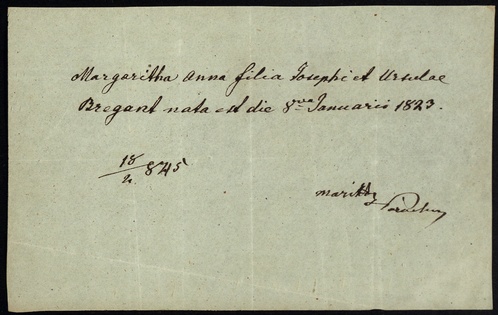 Margaritha Anna filia Josephi et Ursulae
Bregant nata est die 8va Januarii 1823.
18/2 845